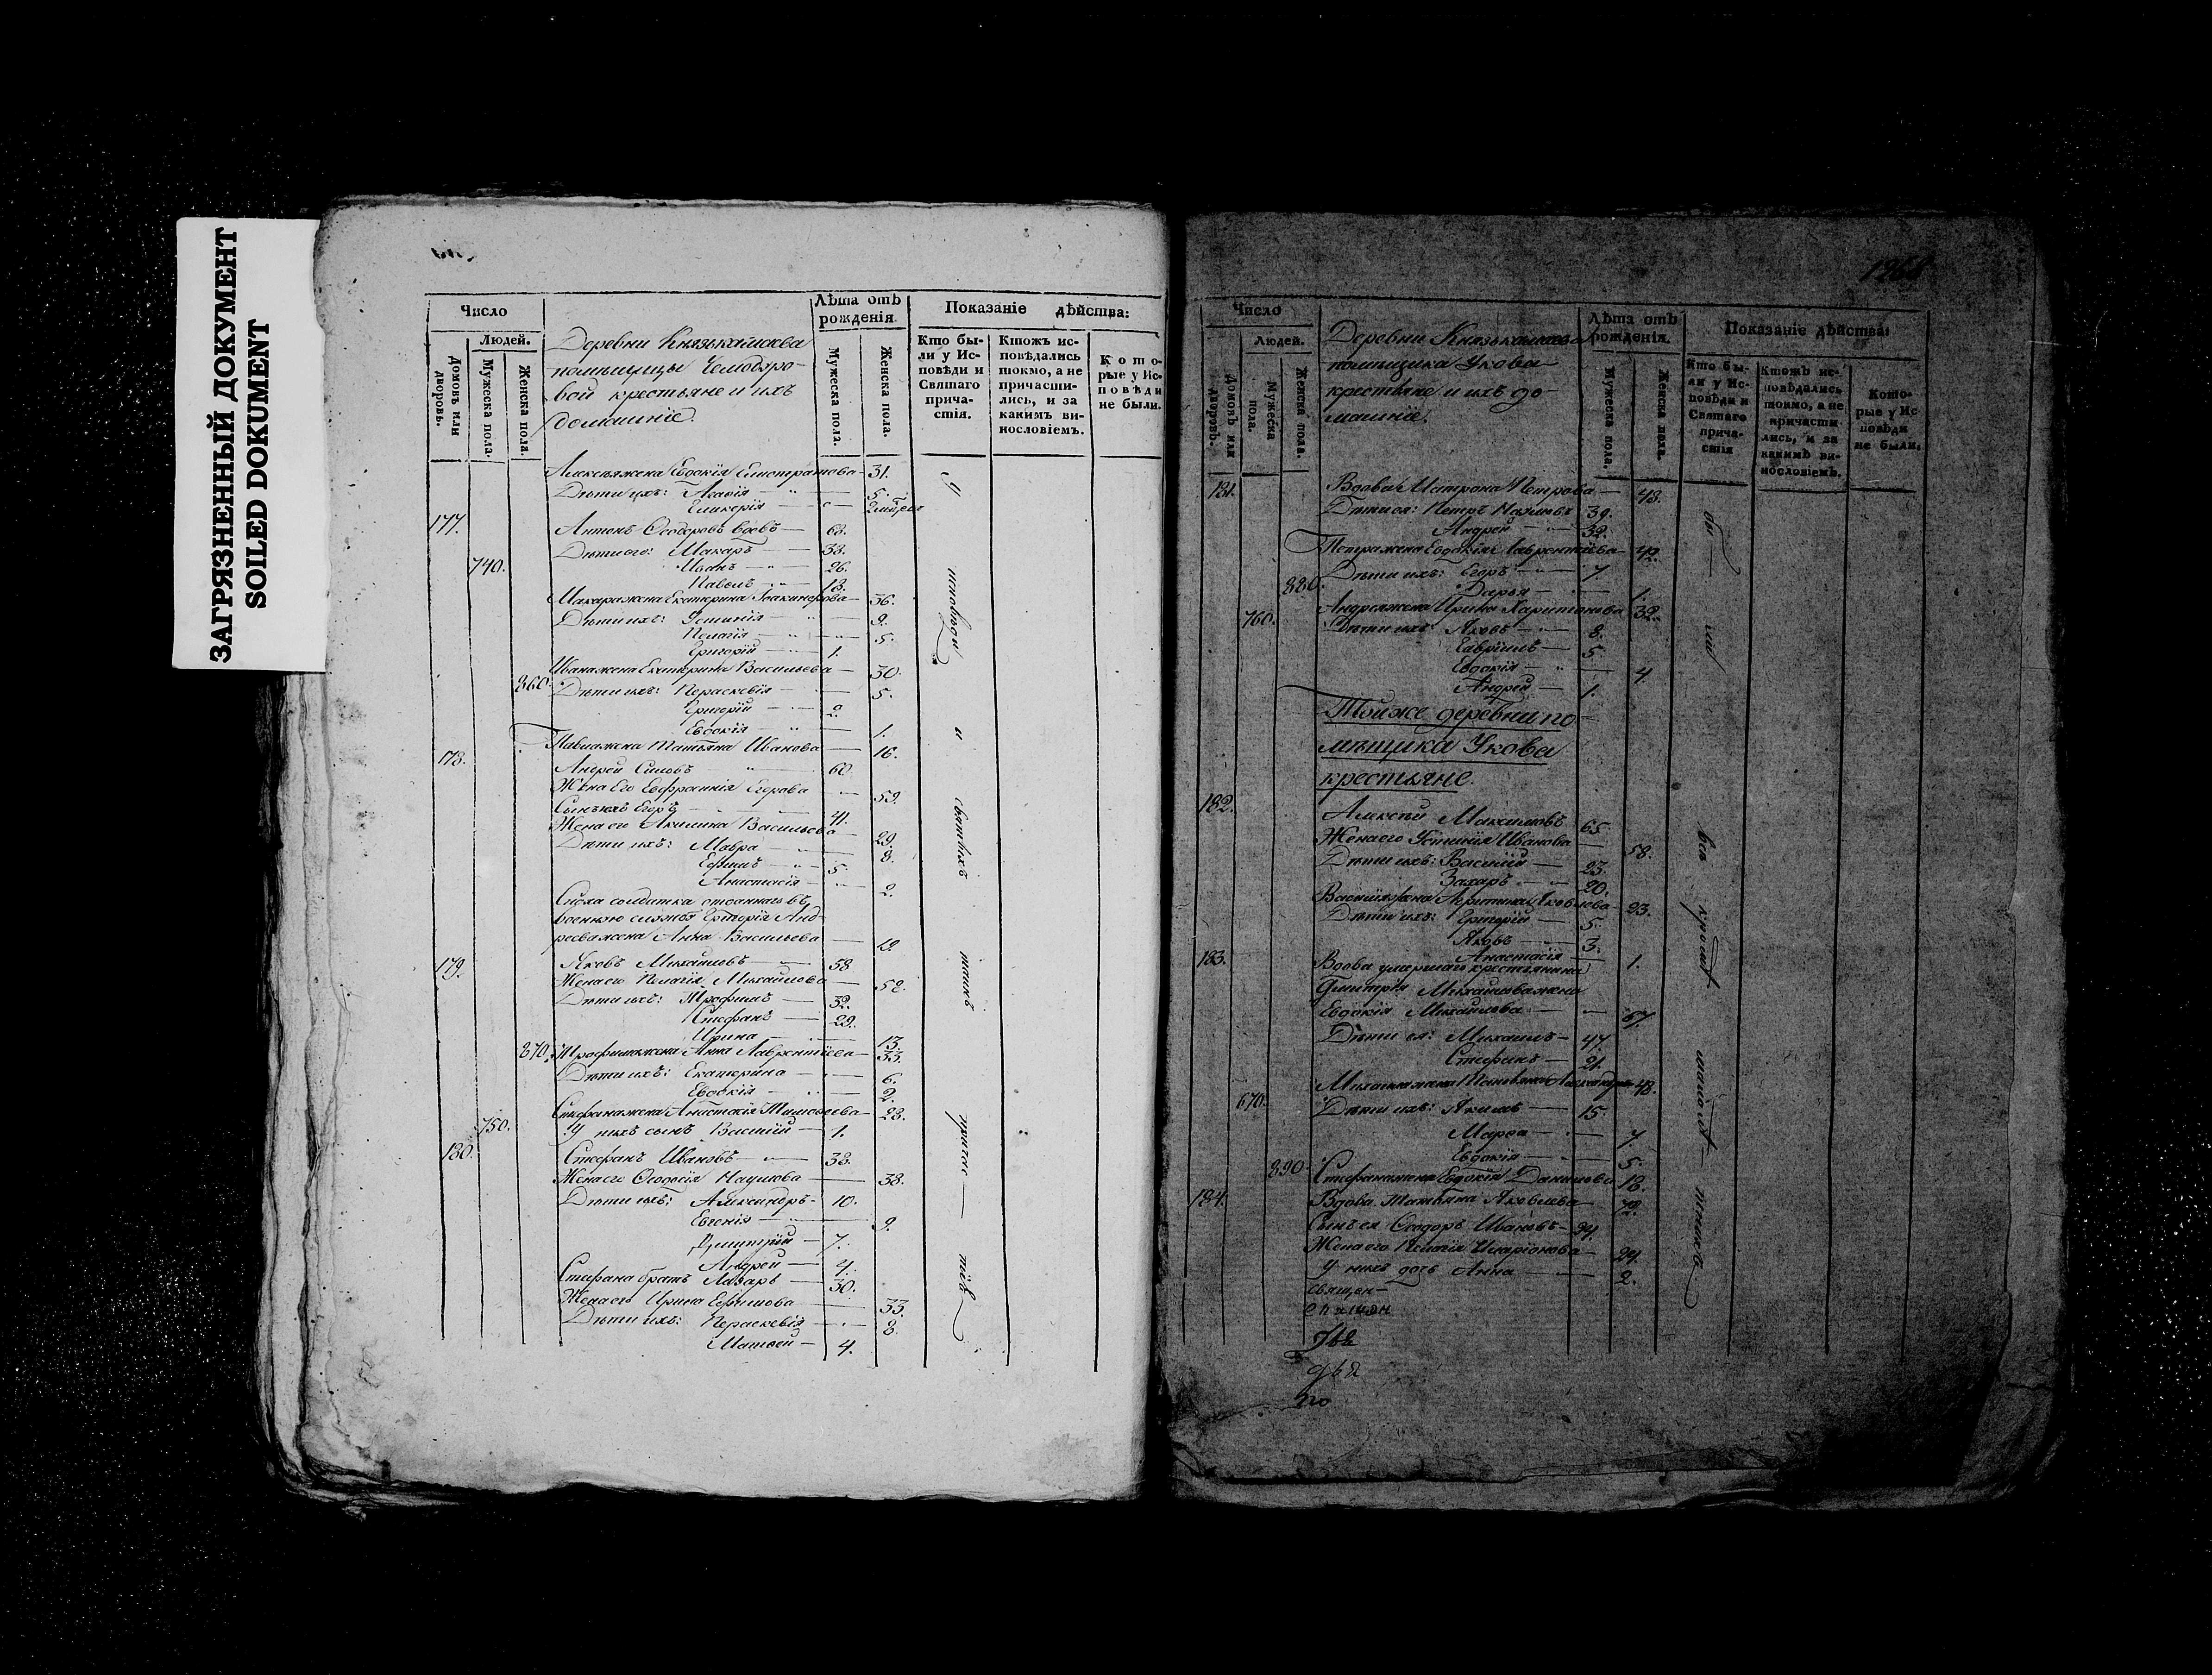 ЗАГРЯЗНЕННЫЙ ДОКУМЕНТ
SOILED DOKUMENT
Число
Людей.
Домовъ или дворовъ.
Мужеска пола.
Женска пола.
Деревни
помѣщицы
вой крестьяне и ихъ
домашніе.
Лѣта отъ рожденія.
Мужеска пола.
Женска пола.
Показаніе дѣйства:
Кто были у Исповѣди и Святаго причастія.
Ктожъ исповѣдались токмо, а не причастились, и за какимъ винословіемъ.
Которые у Исповѣди не были.
жена Евдокія 31.
Дѣти ихъ: 5.
177. Антонъ Ѳеодоровъ вдовъ 63.
Дѣти его: Макаръ 33.
740. Иванъ 26.
Павелъ 13.
Макара жена Екатерина 36.
Дѣти ихъ: Устинія 9.
Пелагія 5.
Григорій 1.
Ивана жена Екатерина Васильева 30.
860. Дѣти ихъ: Параскевія 5.
Григорій 2.
Евдокія 1.
Павла жена Татьяна Иванова 16.
178. Андрей 60.
Жена Его Евфросинія Егорова 59.
Сынъ ихъ Егоръ 41.
Жена его Акилина Васильева 29.
Дѣти ихъ: Мавра 8.
Ефимъ 5.
Анастасія 2.
Сноха солдатка отданнаго въ
военную службу Григорія Анд-
реева жена Анна Васильева
179. Яковъ Михайловъ 58
Жена его Пелагія Михайлова 52.
Дѣти ихъ: Трофимъ 32.
Стефанъ 29.
Ирина 13.
870. Трофима жена Анна Лаврентіева 33.
Дѣти ихъ: Екатерина 6.
Евдокія 2.
Стефана жена Анастасія Тимоѳеева 23.
750. У нихъ сынъ Василій 1.
180. Стефанъ Ивановъ 38.
Жена его Ѳеодосія Наумова 38.
Дѣти ихъ: Александръ 10.
Евгенія 9.
Дмитрій 7.
Андрей 4.
Стефана братъ Лазарь 30.
Жена его Ирина Ефимова 33.
Дѣти ихъ: Параскевія 8.
Матвей 4.
у исповѣди и святыхъ таинъ
Число
Людей.
Домовъ или дворовъ.
Мужеска пола.
Женска пола.
Деревни
помѣщика Укова
крестьяне и ихъ до
машніе.
Лѣта отъ рожденія.
Мужеска пола.
Женска пола.
Показаніе дѣйства:
Кто были у Исповѣди и Святаго причастія
Ктожъ исповѣдались токмо, а не причастились, и за какимъ винословіемъ.
Которые у Исповѣди не были.
181. Вдова Матрона Петрова 43.
Дѣти ея: Петръ 39.
Андрей 32.
Петра жена Евдокія Лаврентіева 42.
Дѣти ихъ: Егоръ 7.
880. Дарья 1.
Андрея жена Ирина Харитонова 32.
760. Дѣти ихъ: Яковъ 8.
Гавріилъ 5.
Евдокія 4
Андрей 1.
Тойже деревни по-
мѣщика Укова
крестьяне.
182. Алексѣй Максимовъ 65.
Жена его Устинія Иванова 58.
Дѣти ихъ: Василій 23.
Захаръ 20.
Василія жена Яковлева 23.
Дѣти ихъ: Григорій 5.
Яковъ 3.
Анастасія 1.
183. Вдова умершаго крестьянина
Дмитрія Михайлова жена
Евдокія Михайлова 67.
Дѣти ея: Михаилъ 47.
Стефанъ 21.
Михаила жена Татьяна 48.
670. Дѣти ихъ: Якимъ 15.
Марѳа 7.
Евдокія 5.
890. Стефана жена Евдокія Данилова 18.
184. Вдова Татьяна Яковлева 72.
Сынъ ея Ѳеодоръ Ивановъ 24.
Жена его Пелагія Иларіонова 24.
У нихъ дочь Анна 2.
бы ли всѣ кромѣ
священ-
по